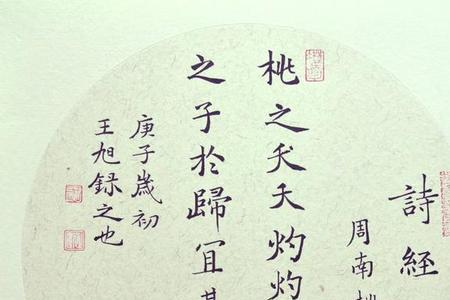 詩經
周南桃
桃之夭夭灼灼
之子於歸宜其
庚子歲初
王旭錄之也